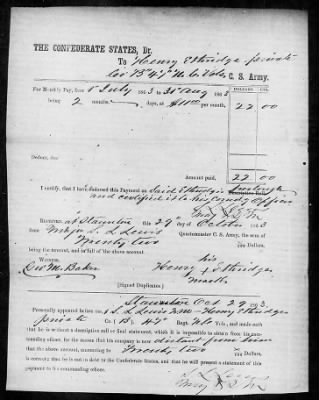 THE CONFEDERATE STATES, Dr.
To Henry Ethridge private
Co B 47th Va Vols C. S. Army.
For Monthly Pay, from 1 July 1863 to 31 Aug 1863
being 2 months days, at $11 00 per month, 22 00
Deduct, for
Amount paid, 22 00
I certify, that I have endorsed this Payment on Said Ethridge's furlough
and certified it to his Comdg Officer
Received, at Staunton this 29th day of October 1863
from Major S. L. Lewis Quartermaster C. S. Army, the sum of
Twenty two Dollars,
being the amount, and in full of the above account.
Witness, his
Geo M. Baker Henry + Ethridge
mark
(Signed Duplicates.)
Staunton Oct 29 1863.
Personally appeared before me S. L. Lewis Henry Ethridge
private Co. B 47 Regt. Vols, and made oath
that he is without a descriptive roll or final statement, which it is impossible to obtain from his
commanding officer, for the reason that his company is now distant from him
that the above account, amounting to Twenty two Dollars,
is correct; that he is not in debt to the Confederate States, and that he will present a statement of this payment
to his commanding officer.